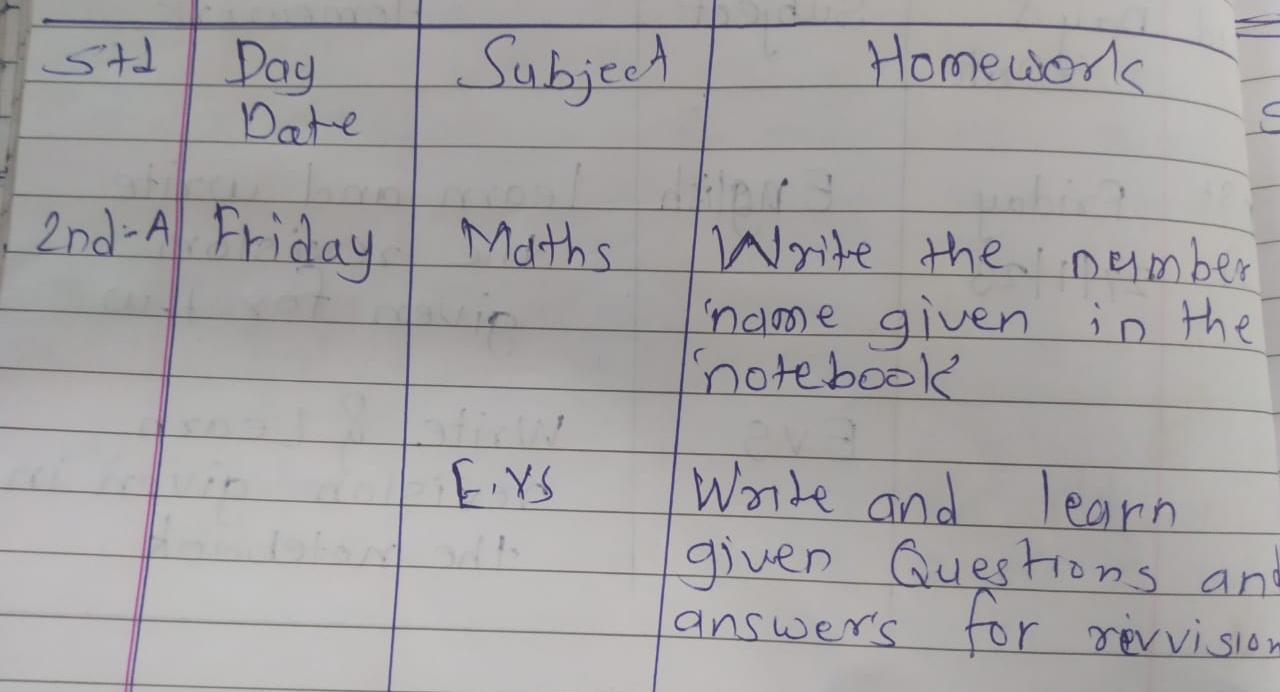 Std Day Subject Homework
Date
2nd-A Friday Maths Write the number
name given in the
notebook
E.VS Write and learn
given Questions and
answer's for revvision